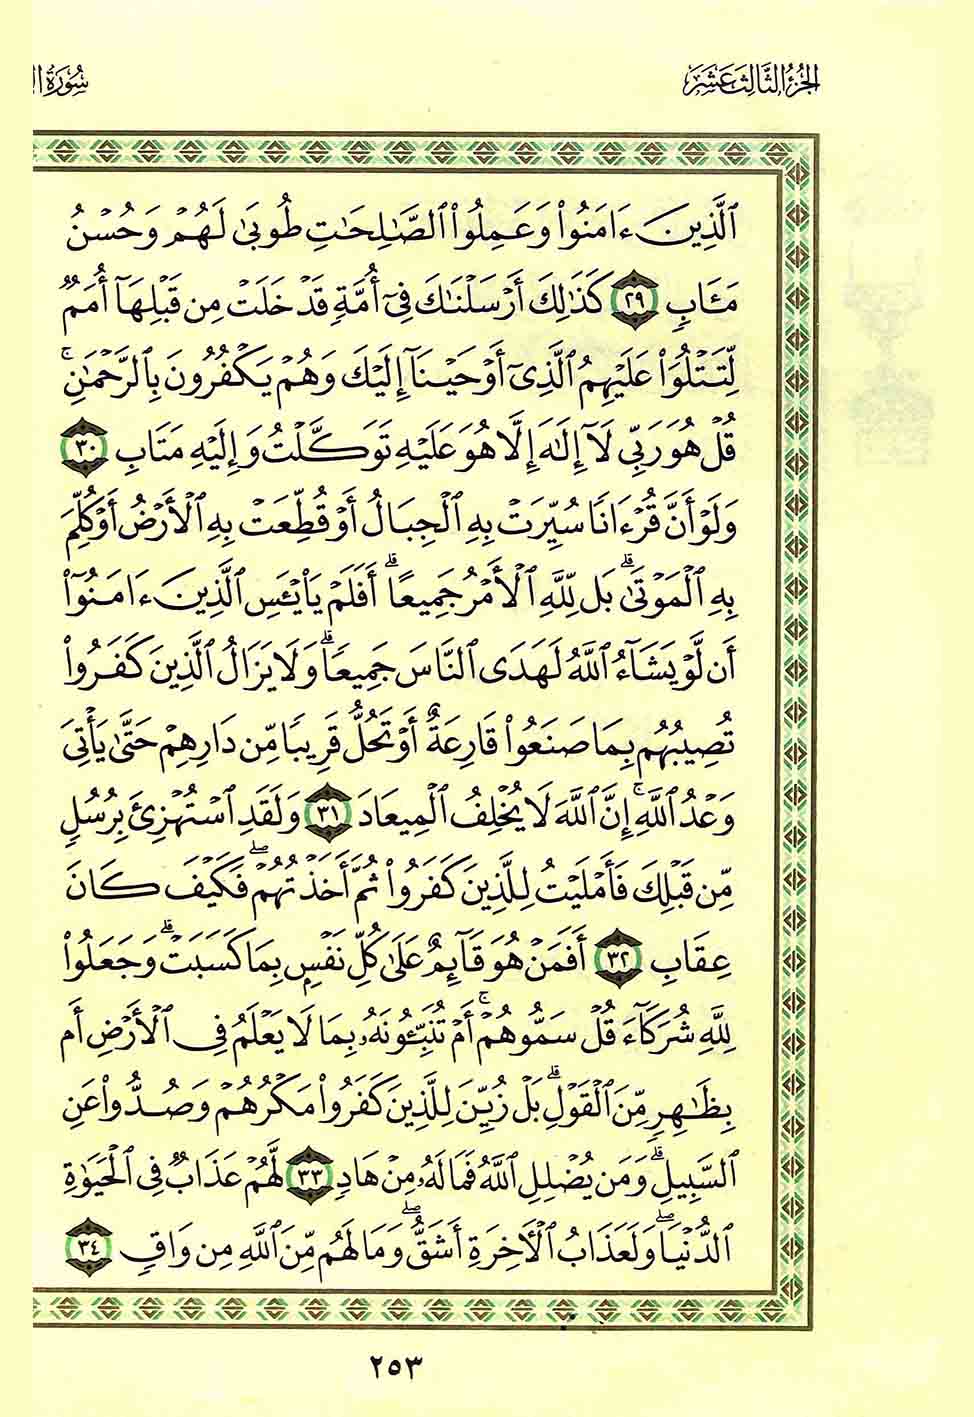 الجزء الثالث عشر
سورة
ٱلَّذِينَ ءَامَنُوا۟ وَعَمِلُوا۟ ٱلصَّـٰلِحَـٰتِ طُوبَىٰ لَهُمْ وَحُسْنُ
مَـَٔابٍ ٢٩ كَذَٰلِكَ أَرْسَلْنَـٰكَ فِىٓ أُمَّةٍ قَدْ خَلَتْ مِن قَبْلِهَآ أُمَمٌ
لِّتَتْلُوَا۟ عَلَيْهِمُ ٱلَّذِىٓ أَوْحَيْنَآ إِلَيْكَ وَهُمْ يَكْفُرُونَ بِٱلرَّحْمَـٰنِ ۚ
قُلْ هُوَ رَبِّى لَآ إِلَـٰهَ إِلَّا هُوَ عَلَيْهِ تَوَكَّلْتُ وَإِلَيْهِ مَتَابِ ٣٠
وَلَوْ أَنَّ قُرْءَانًا سُيِّرَتْ بِهِ ٱلْجِبَالُ أَوْ قُطِّعَتْ بِهِ ٱلْأَرْضُ أَوْ كُلِّمَ
بِهِ ٱلْمَوْتَىٰ ۗ بَل لِّلَّهِ ٱلْأَمْرُ جَمِيعًا ۗ أَفَلَمْ يَا۟يْـَٔسِ ٱلَّذِينَ ءَامَنُوٓا۟
أَن لَّوْ يَشَآءُ ٱللَّهُ لَهَدَى ٱلنَّاسَ جَمِيعًا ۗ وَلَا يَزَالُ ٱلَّذِينَ كَفَرُوا۟
تُصِيبُهُم بِمَا صَنَعُوا۟ قَارِعَةٌ أَوْ تَحُلُّ قَرِيبًا مِّن دَارِهِمْ حَتَّىٰ يَأْتِىَ
وَعْدُ ٱللَّهِ ۚ إِنَّ ٱللَّهَ لَا يُخْلِفُ ٱلْمِيعَادَ ٣١ وَلَقَدِ ٱسْتُهْزِئَ بِرُسُلٍ
مِّن قَبْلِكَ فَأَمْلَيْتُ لِلَّذِينَ كَفَرُوا۟ ثُمَّ أَخَذْتُهُمْ ۖ فَكَيْفَ كَانَ
عِقَابِ ٣٢ أَفَمَنْ هُوَ قَآئِمٌ عَلَىٰ كُلِّ نَفْسٍۭ بِمَا كَسَبَتْ ۗ وَجَعَلُوا۟
لِلَّهِ شُرَكَآءَ قُلْ سَمُّوهُمْ ۚ أَمْ تُنَبِّـُٔونَهُۥ بِمَا لَا يَعْلَمُ فِى ٱلْأَرْضِ أَم
بِظَـٰهِرٍ مِّنَ ٱلْقَوْلِ ۗ بَلْ زُيِّنَ لِلَّذِينَ كَفَرُوا۟ مَكْرُهُمْ وَصُدُّوا۟ عَنِ
ٱلسَّبِيلِ ۗ وَمَن يُضْلِلِ ٱللَّهُ فَمَا لَهُۥ مِنْ هَادٍ ٣٣ لَّهُمْ عَذَابٌ فِى ٱلْحَيَوٰةِ
ٱلدُّنْيَا ۖ وَلَعَذَابُ ٱلْـَٔاخِرَةِ أَشَقُّ ۖ وَمَا لَهُم مِّنَ ٱللَّهِ مِن وَاقٍ ٣٤
٢٥٣